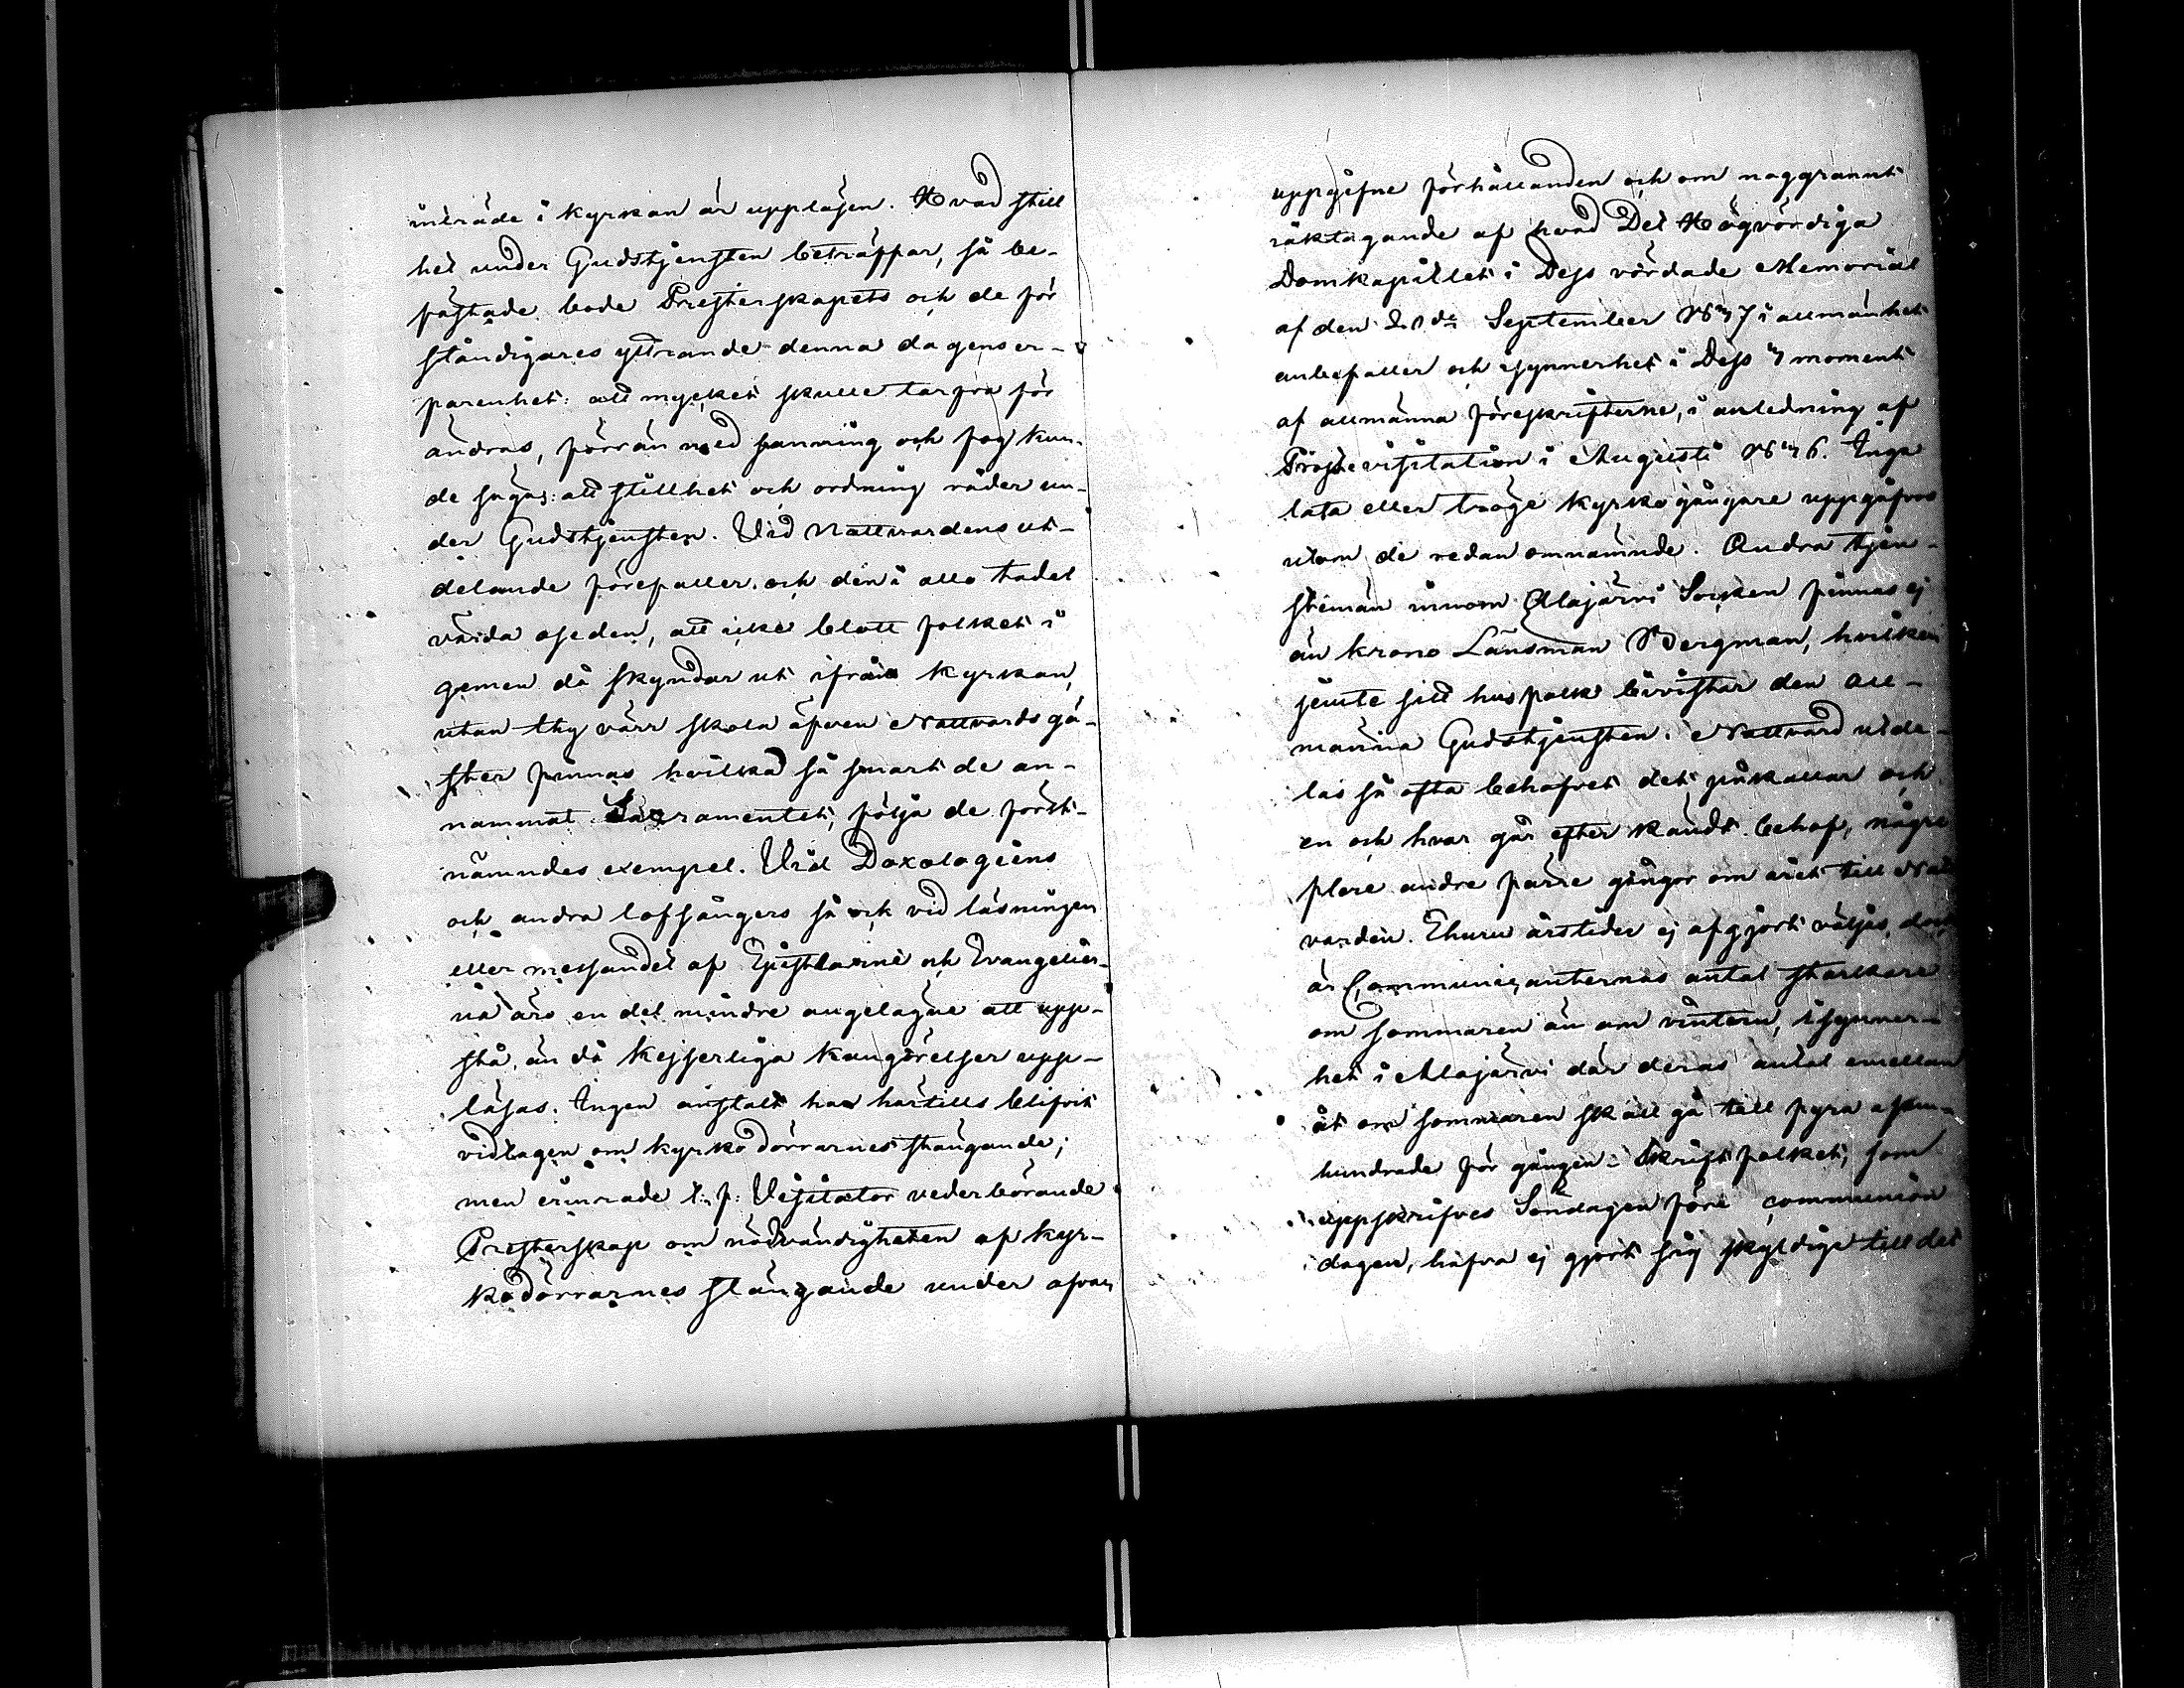 inträde i kyrkan är upplåsen. Hvad still
het under Gudstjensten beträffar, så be-
fästade bode Presterskapets och de för
ståndigares yttrande denna dagens er-
farenhet: att mycket skulle tarfva för
ändras, förrän med sanning och fog kun-
de sägas: att stillhet och ordning råder un-
der Gudstjensten. Vid Nattvardens ut-
delande förefaller och den i allo tadel
värda oseden, att icke blott folket i
gemen då skyndar ut ifrån kyrkan,
utan thy värr skola äfven Nattvards gä-
ster finnas hvilka så snart de an-
nammat Sacramentet, följa de först-
nämndes exempel. Vid Doxologiens
och andra lofsångers så och vid läsningen
eller messandet af Epistlarne och Evangelier-
na äro en del mindre angelägne att upp-
stå, än då Kejserliga Kungörelser upp-
läsas. Ingen anstalt har härtills blifvit
vidtagen om kyrko dörrarnes stängande;
men erinrade t: f: Visitator vederbörande
Presterskap om nödvändigheten af kyr-
kodörrarnes stängande under ofvan
uppgifne förhållanden och om noggrannt
iakttagande af hvad Det Högvördiga
Domkapitlet i Dess vördade Memorial
af den 21de September 1847 i allmänhet
anbefaller och isynnerhet i Dess 4 moment
af allmänna föreskrifterne, i anledning af
Prostevisitation i Augusti 1846. Inga
lata eller tröge kyrkogångare uppgåfvos
utom de redan omnämnde. Andra tjen-
stemän innom Alajärvi Socken finnas ej
än krono Länsman Bergman, hvilken
jemte sitt husfolk bivistar den all-
männa Gudstjensten. Nattvard utde-
las så ofta behofvet det påkallar och
en och hvar går efter kändt behof, någre
flere andre färre gångor om året till Natt
varden. Ehuru årstider ej afgjort väljas, dock
är Communicanternas antal starkare
om sommaren än om vintern, isynner-
het i Alajärvi där deras antal emellan
åt om sommaren skall gå till fyra a fem-
hundrade för gången. Skriftfolket, som
uppskrifves Söndagen före communion
dagen, hafva ej gjort sig skyldige till det